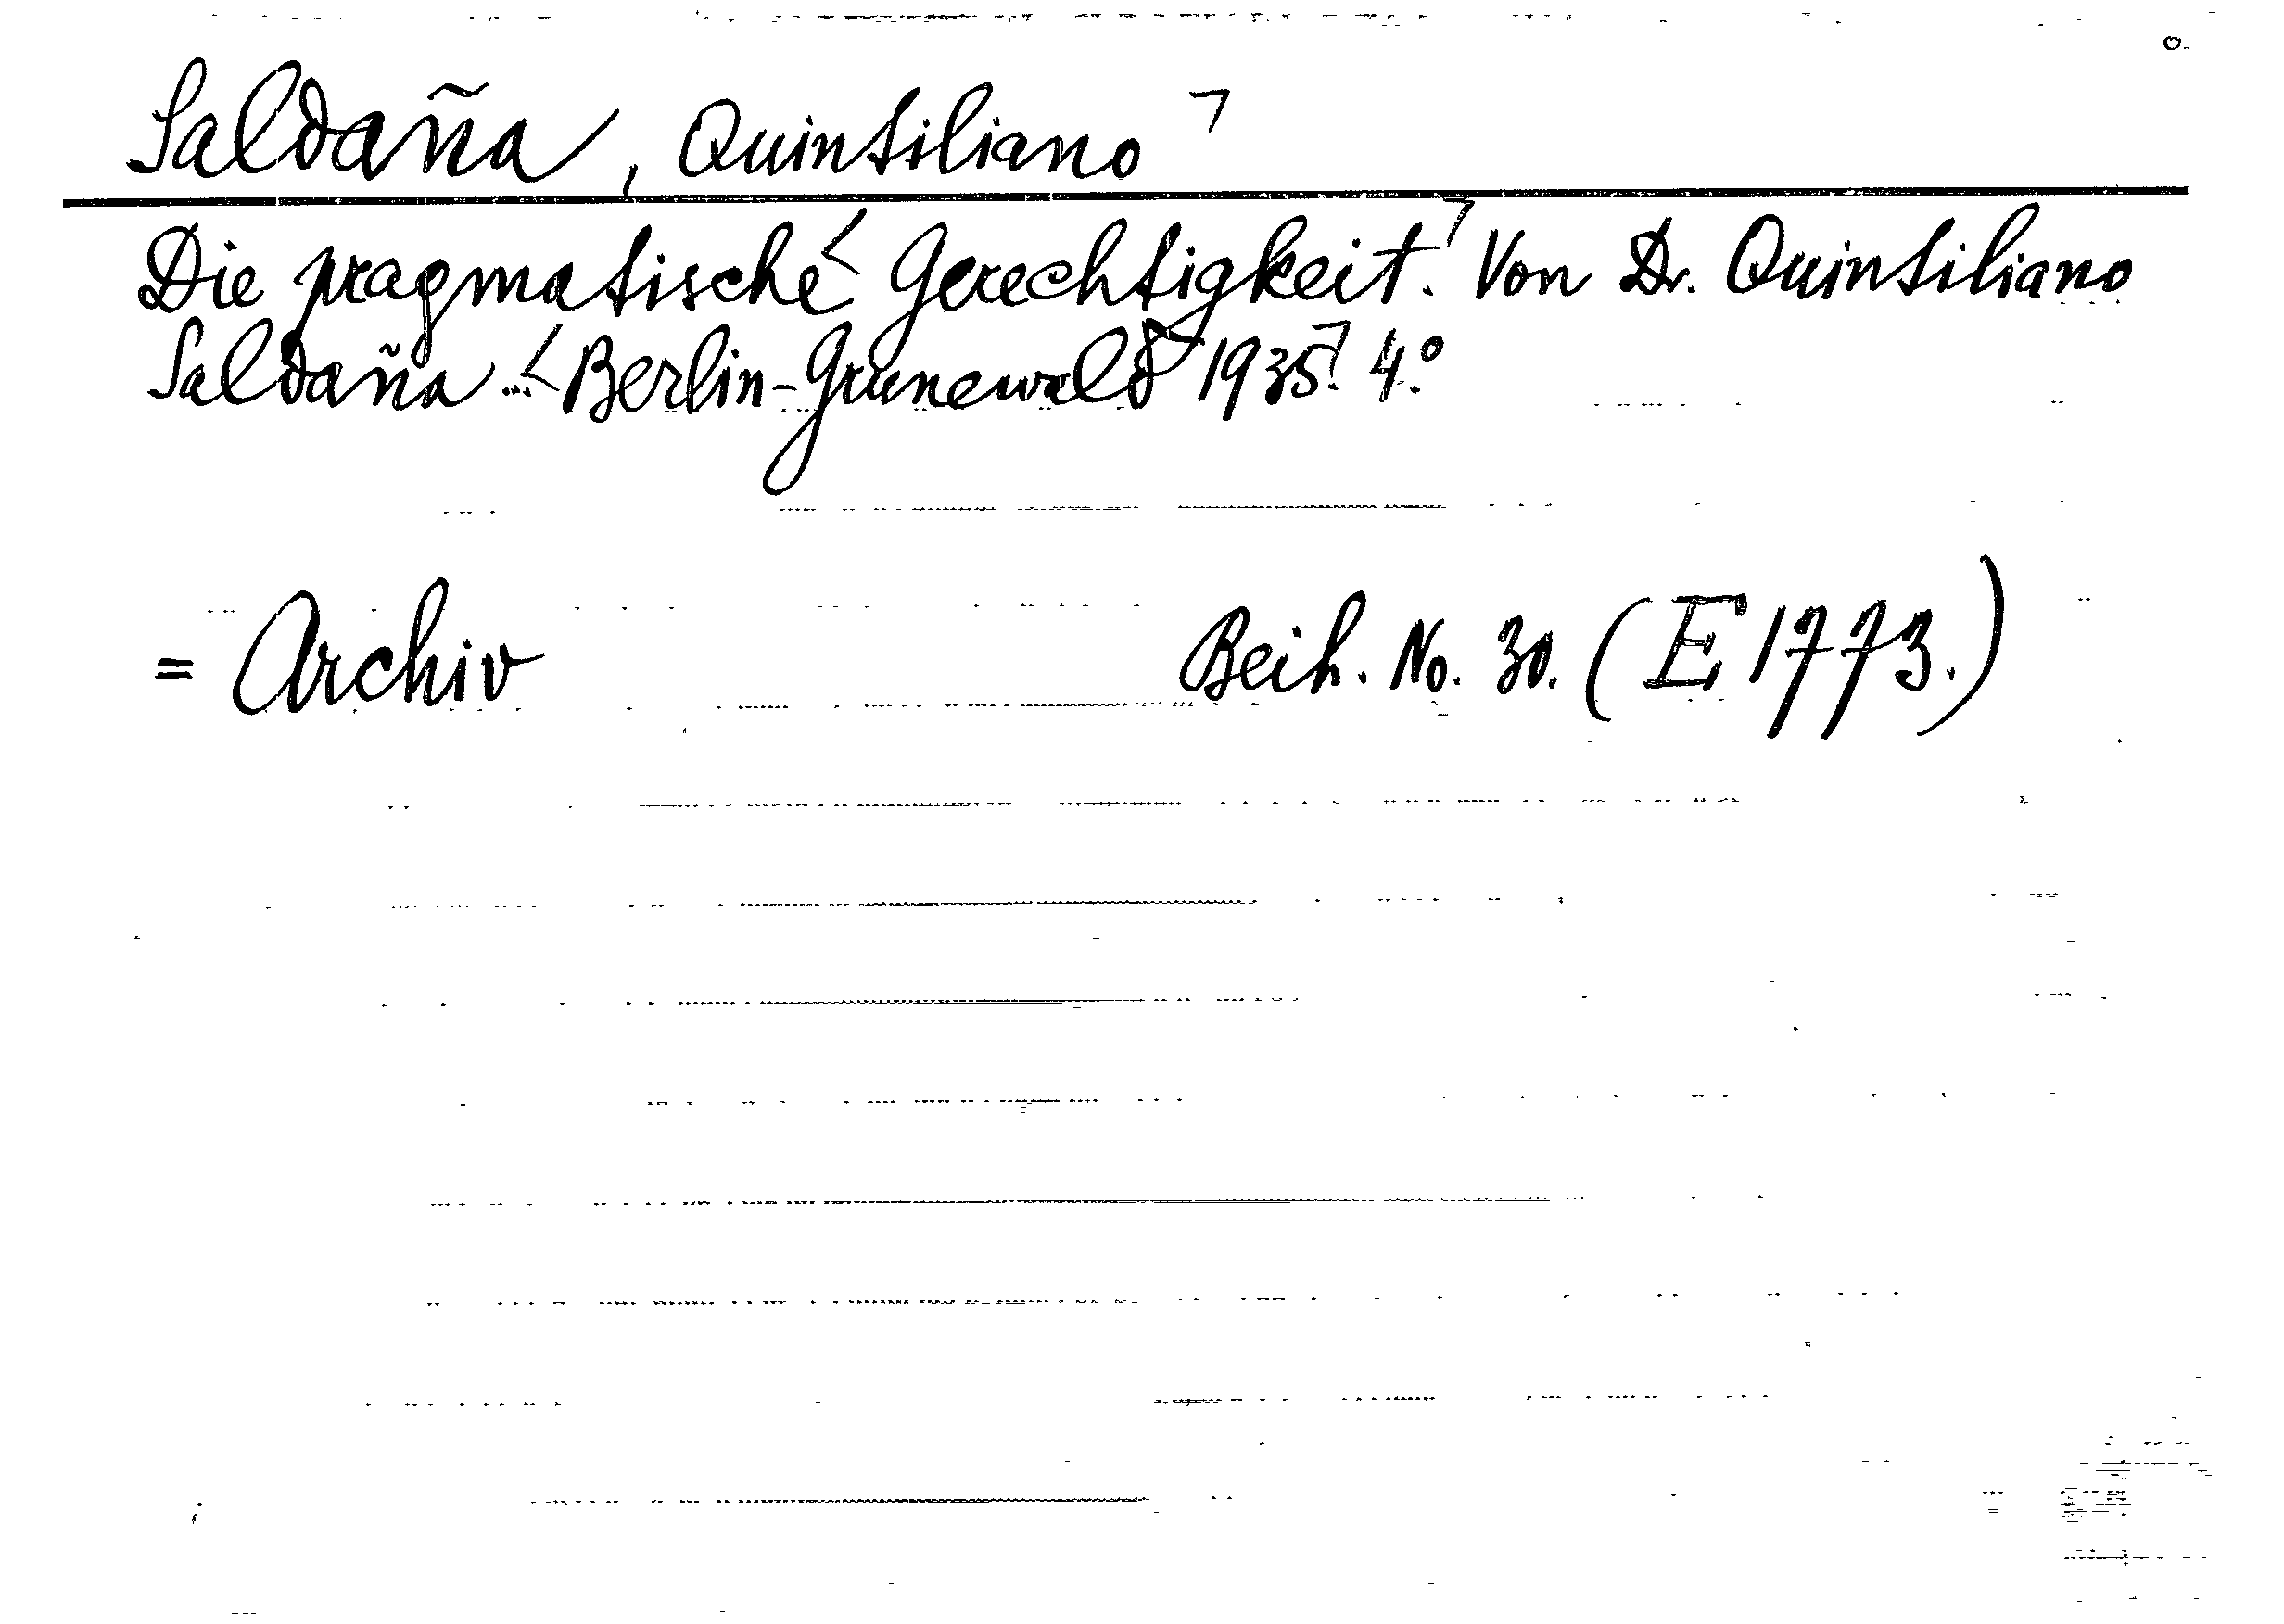 Saldaña, Quintiliano
Die pragmatische Gerechtigkeit. Von Dr. Quintiliano
Saldaña ... Berlin-Grunewald 1935. 4.º
= Archiv Beih. No. 30. (E 1773.)